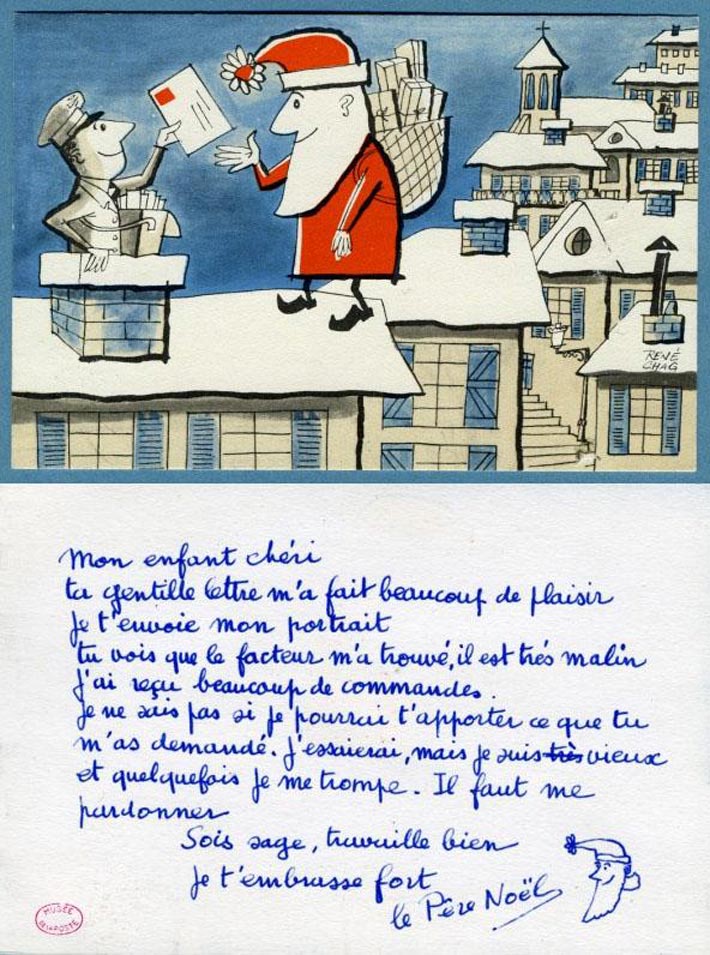 RENÉ
CHAG
Mon enfant chéri
ta gentille lettre m'a fait beaucoup de plaisir
Je t'envoie mon portrait
tu vois que le facteur m'a trouvé, il est trés malin
J'ai reçu beaucoup de commandes.
Je ne sais pas si je pourrai t'apporter ce que tu
m'as demandé. J'essaierai, mais je suis très vieux
et quelquefois je me trompe. Il faut me
pardonner
Sois sage, travaille bien
Je t'embrasse fort
le Père Noël
MUSÉE
DE LA POSTE